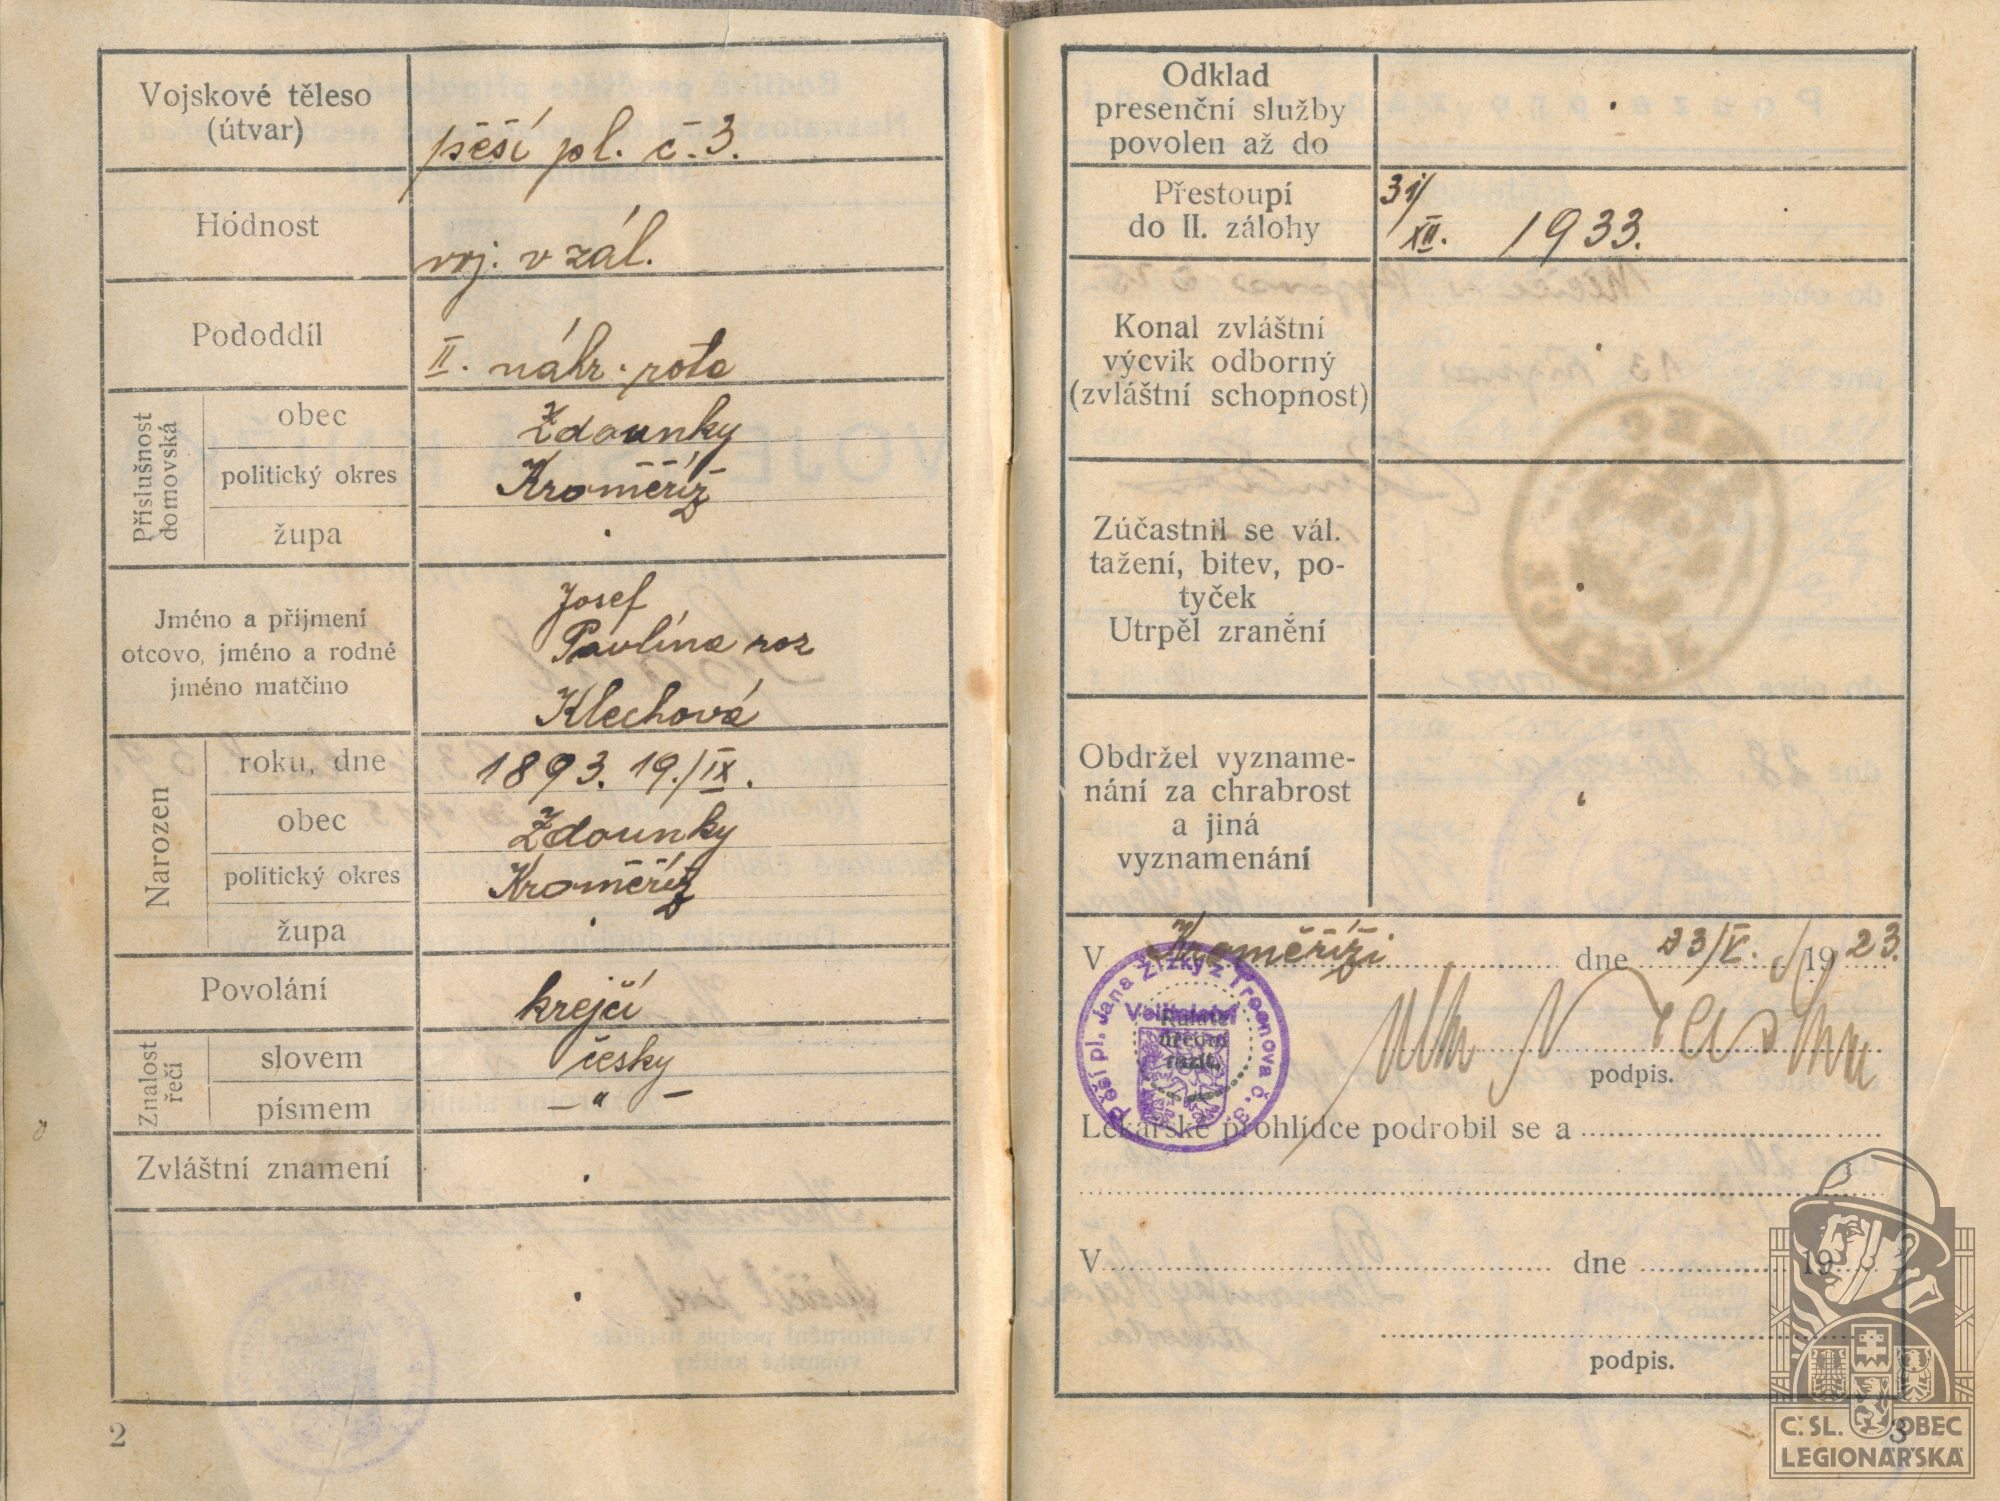 Vojskové těleso
(útvar)
pěší pl. č. 3.
Hodnost
voj. v zál.
Pododdíl
II. náhr. rota
Příslušnost
domovská
obec
Zdounky
politický okres
Kroměříž
župa
Jméno a příjmení
otcovo, jméno a rodné
jméno matčino
Josef
Pavlína roz
Klechová
Narozen
roku, dne
1893. 19./IX.
obec
Zdounky
politický okres
Kroměříž
župa
Povolání
krejčí
Znalost
řečí
slovem
česky
písmem
— „ —
Zvláštní znamení
2
Odklad
presenční služby
povolen až do
Přestoupí
do II. zálohy
31/XII. 1933.
Konal zvláštní
výcvik odborný
(zvláštní schopnost)
Zúčastnil se vál.
tažení, bitev, po-
tyček
Utrpěl zranění
Obdržel vyzname-
nání za chrabrost
a jiná
vyznamenání
V Kroměříži dne 23/V. 1923.
Pěší pl. Jana Žižky z Trocnova č. 3
Velitelství
Kulaté
úřední
razít.
podpis.
Lékařské prohlídce podrobil se a
V dne 19
podpis.
3
Č. SL. OBEC
LEGIONÁŘSKÁ